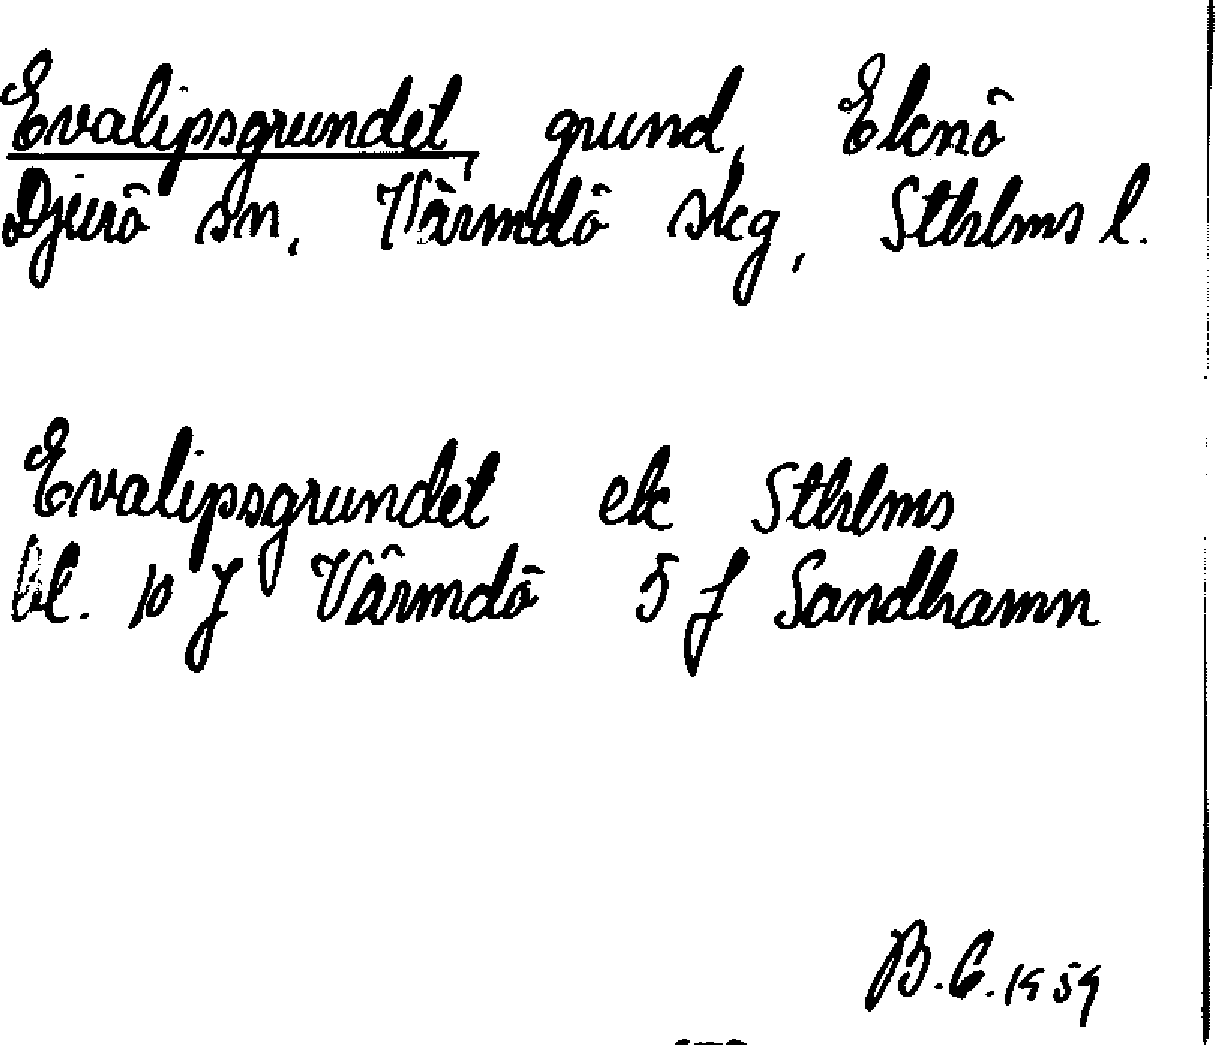 Evalipsgrundet, grund, Eknö
Djurö sn, Värmdö skg, Sthlms l.
Evalipsgrundet ek Sthlms
bl. 10 J Värmdö 5 f Sandhamn
B.C. 1959